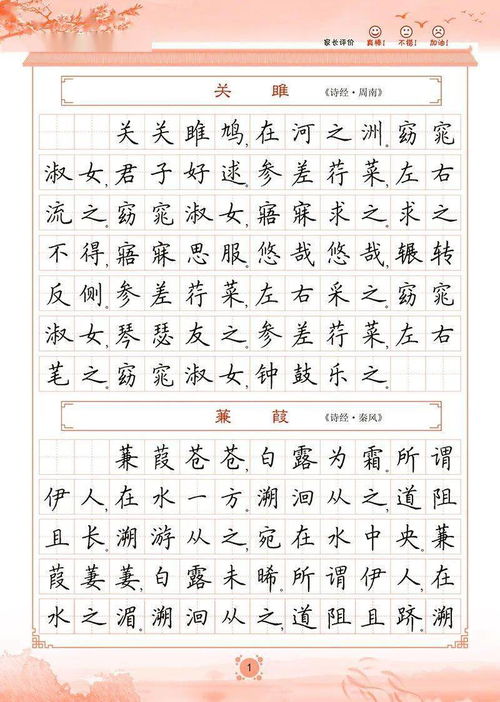 家长评价 真棒! 不错! 加油!
关 雎 《诗经·周南》
关关雎鸠,在河之洲。窈窕
淑女,君子好逑。参差荇菜,左右
流之。窈窕淑女,寤寐求之。求之
不得,寤寐思服。悠哉悠哉,辗转
反侧。参差荇菜,左右采之。窈窕
淑女,琴瑟友之。参差荇菜,左右
笔之。窈窕淑女,钟鼓乐之。
蒹 葭 《诗经·秦风》
蒹葭苍苍,白露为霜。所谓
伊人,在水一方。溯洄从之,道阻
且长。溯游从之,宛在水中央。蒹
葭萋萋,白露未晞。所谓伊人,在
水之湄。溯洄从之,道阻且跻。溯
1